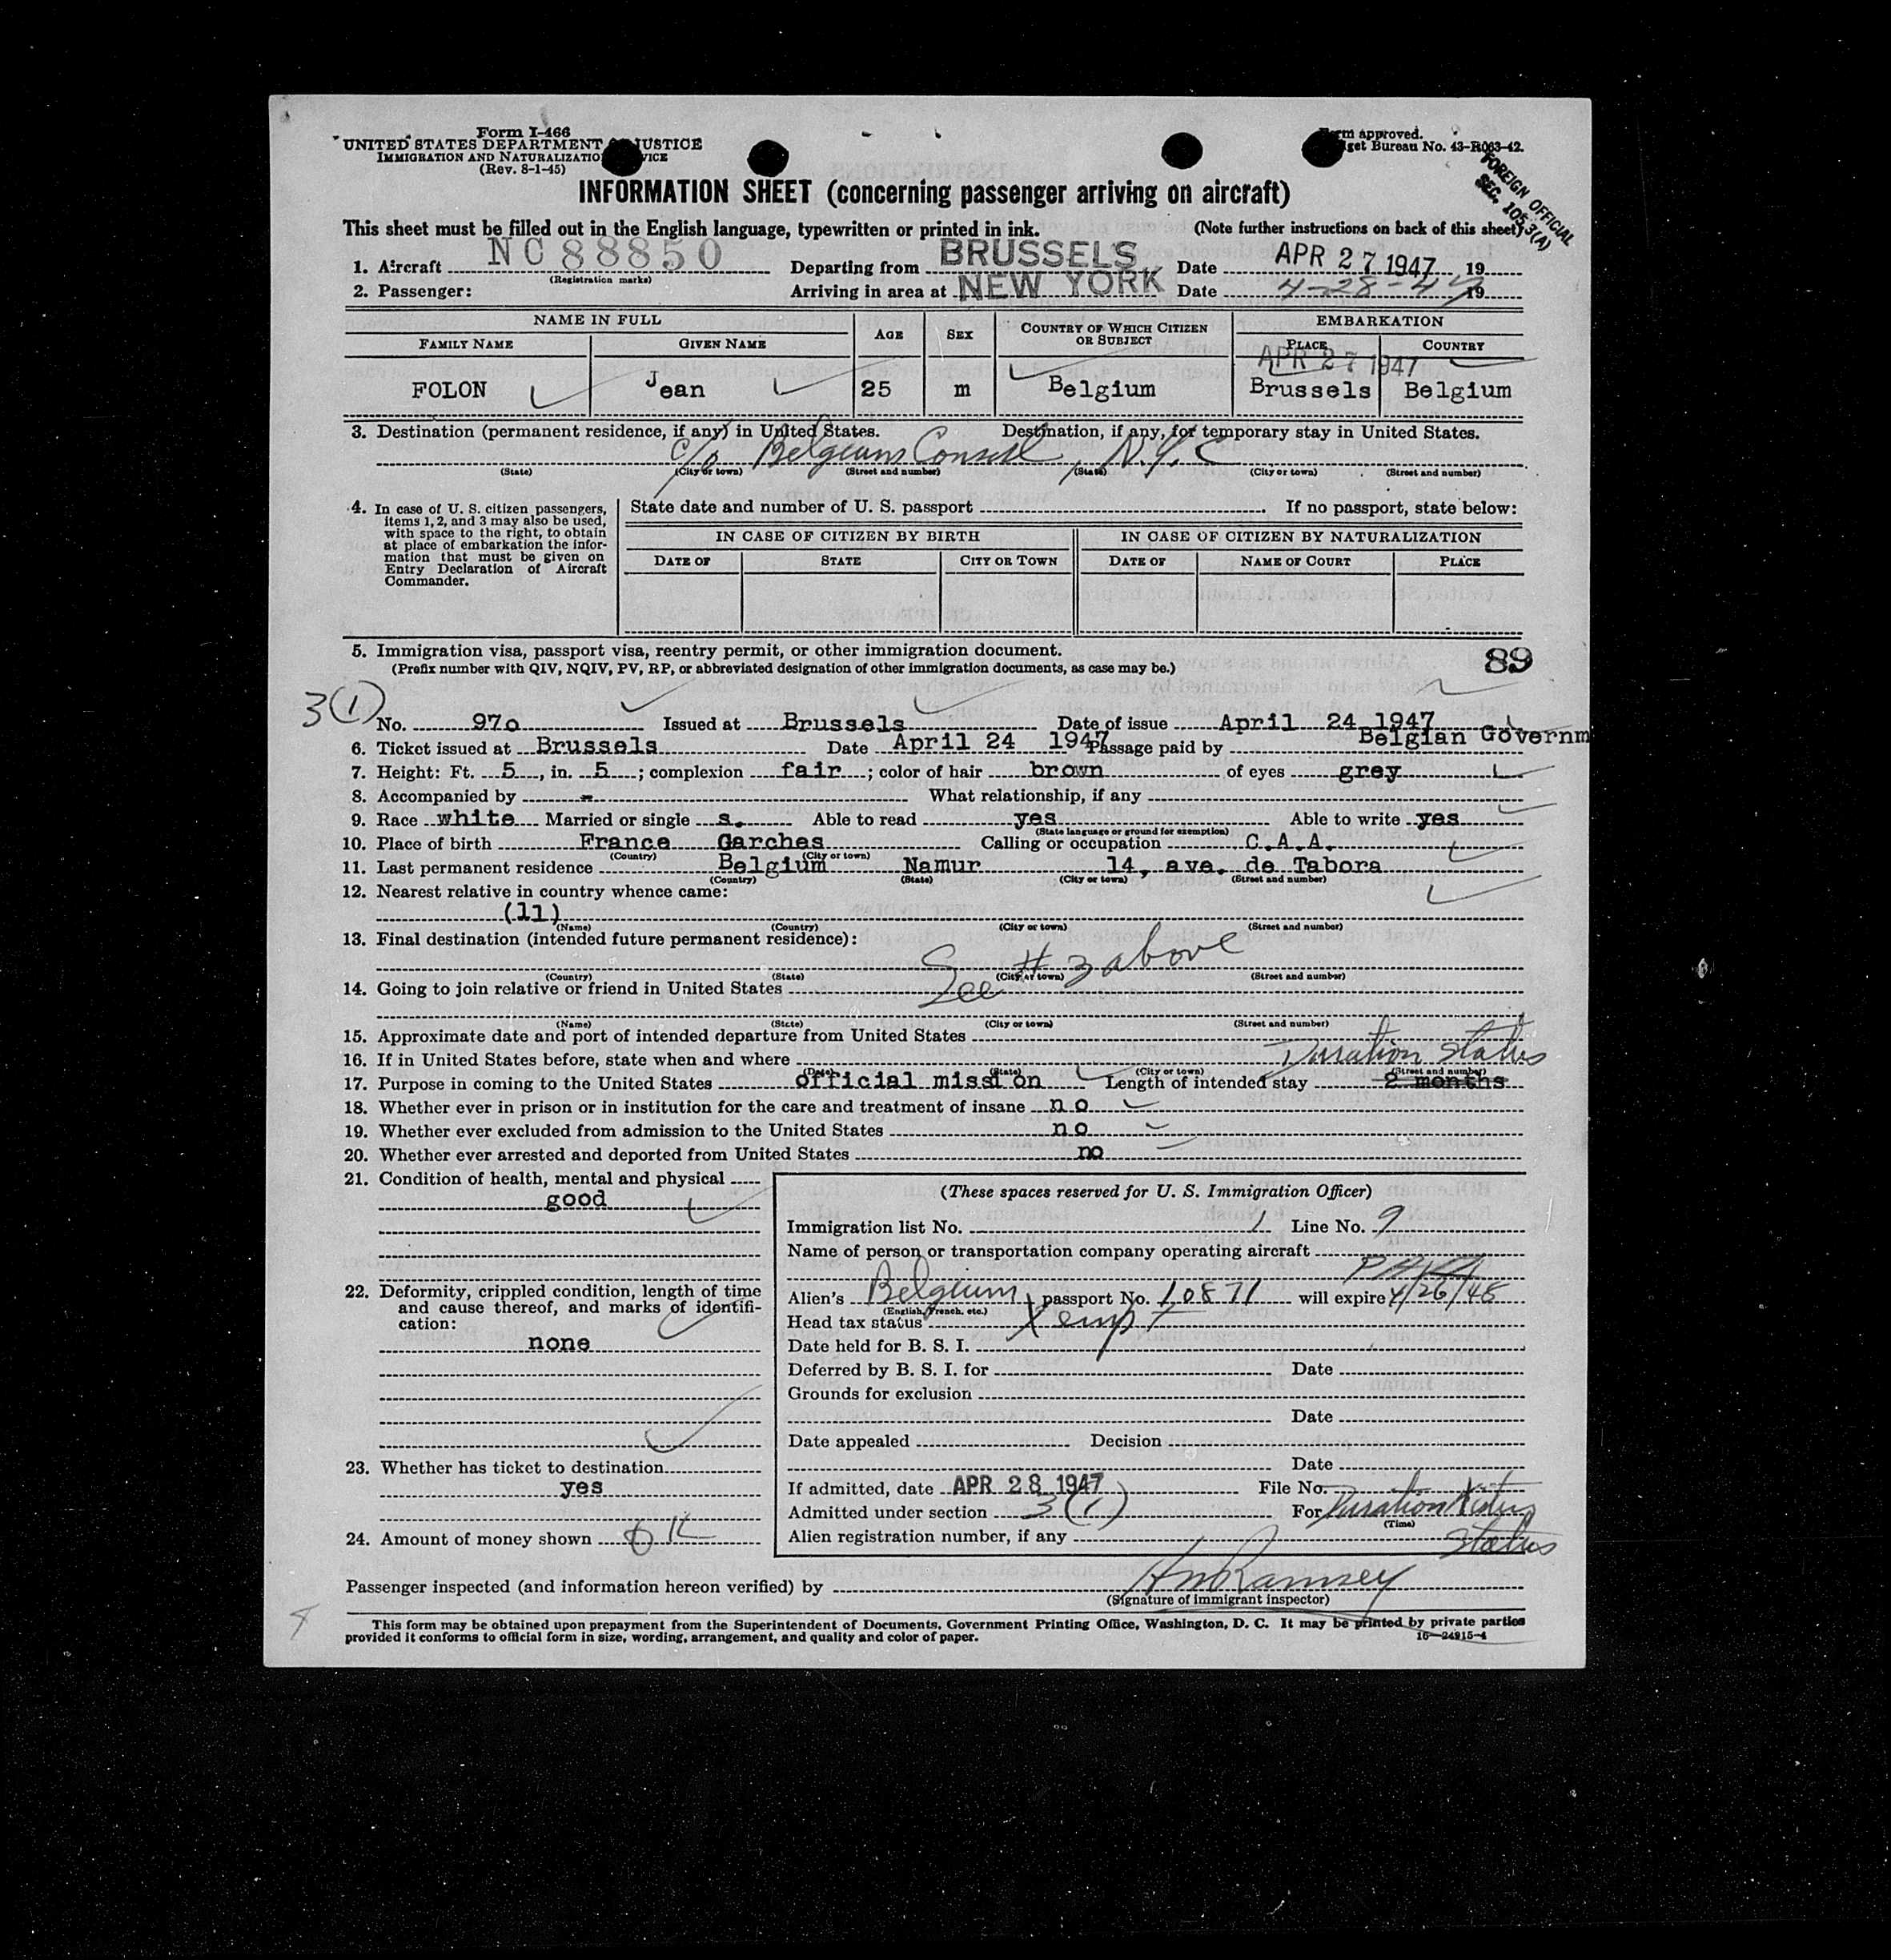 Form I-466
UNITED STATES DEPARTMENT OF JUSTICE
IMMIGRATION AND NATURALIZATION SERVICE
(Rev. 8-1-45)
Form approved.
Budget Bureau No. 43-R063-42.
FOREIGN OFFICIAL
SEC. 105.3(A)
INFORMATION SHEET (concerning passenger arriving on aircraft)
This sheet must be filled out in the English language, typewritten or printed in ink. (Note further instructions on back of this sheet)
1. Aircraft NC88850 Departing from BRUSSELS Date APR 27 1947 19
(Registration marks)
2. Passenger: Arriving in area at NEW YORK Date 4-28-47 19
NAME IN FULL AGE SEX COUNTRY OF WHICH CITIZEN OR SUBJECT EMBARKATION
FAMILY NAME GIVEN NAME PLACE COUNTRY
APR 27 1947
FOLON Jean 25 m Belgium Brussels Belgium
3. Destination (permanent residence, if any) in United States. Destination, if any, for temporary stay in United States.
c/o Belgium Consul, N.Y.C
(State) (City or town) (Street and number) (State) (City or town) (Street and number)
4. In case of U. S. citizen passengers,
items 1, 2, and 3 may also be used,
with space to the right, to obtain
at place of embarkation the infor-
mation that must be given on
Entry Declaration of Aircraft
Commander.
State date and number of U. S. passport If no passport, state below:
IN CASE OF CITIZEN BY BIRTH IN CASE OF CITIZEN BY NATURALIZATION
DATE OF STATE CITY OR TOWN DATE OF NAME OF COURT PLACE
5. Immigration visa, passport visa, reentry permit, or other immigration document.
(Prefix number with QIV, NQIV, PV, RP, or abbreviated designation of other immigration documents, as case may be.)
89
3(1)
No. 97o Issued at Brussels Date of issue April 24 1947
6. Ticket issued at Brussels Date April 24 1947 Passage paid by Belgian Governm
7. Height: Ft. 5, in. 5; complexion fair; color of hair brown of eyes grey
8. Accompanied by - What relationship, if any
9. Race white Married or single s. Able to read yes Able to write yes
(State language or ground for exemption)
10. Place of birth France Garches Calling or occupation C.A.A.
(Country) (City or town)
11. Last permanent residence Belgium Namur 14, ave. de Tabora
(Country) (State) (City or town) (Street and number)
12. Nearest relative in country whence came:
(11)
(Name) (Country) (City or town) (Street and number)
13. Final destination (intended future permanent residence):
See # 3 above
(Country) (State) (City or town) (Street and number)
14. Going to join relative or friend in United States
(Name) (State) (City or town) (Street and number)
15. Approximate date and port of intended departure from United States
16. If in United States before, state when and where Duration Status
(Date) (State) (City or town) (Street and number)
17. Purpose in coming to the United States official mission Length of intended stay 2 months
18. Whether ever in prison or in institution for the care and treatment of insane no
19. Whether ever excluded from admission to the United States no
20. Whether ever arrested and deported from United States no
21. Condition of health, mental and physical
good
22. Deformity, crippled condition, length of time
and cause thereof, and marks of identifi-
cation:
none
23. Whether has ticket to destination
yes
24. Amount of money shown OK
(These spaces reserved for U. S. Immigration Officer)
Immigration list No. 1 Line No. 9
Name of person or transportation company operating aircraft
PAA
Alien's Belgium passport No. 10871 will expire 4/26/48
(English, French, etc.)
Head tax status Xempt
Date held for B. S. I.
Deferred by B. S. I. for Date
Grounds for exclusion
Date
Date appealed Decision
Date
If admitted, date APR 28 1947 File No.
Admitted under section 3(1) For Duration Status
(Time)
Alien registration number, if any Status
Passenger inspected (and information hereon verified) by HmRamsey
(Signature of immigrant inspector)
This form may be obtained upon prepayment from the Superintendent of Documents, Government Printing Office, Washington, D. C. It may be printed by private parties
provided it conforms to official form in size, wording, arrangement, and quality and color of paper.
16—24915-4